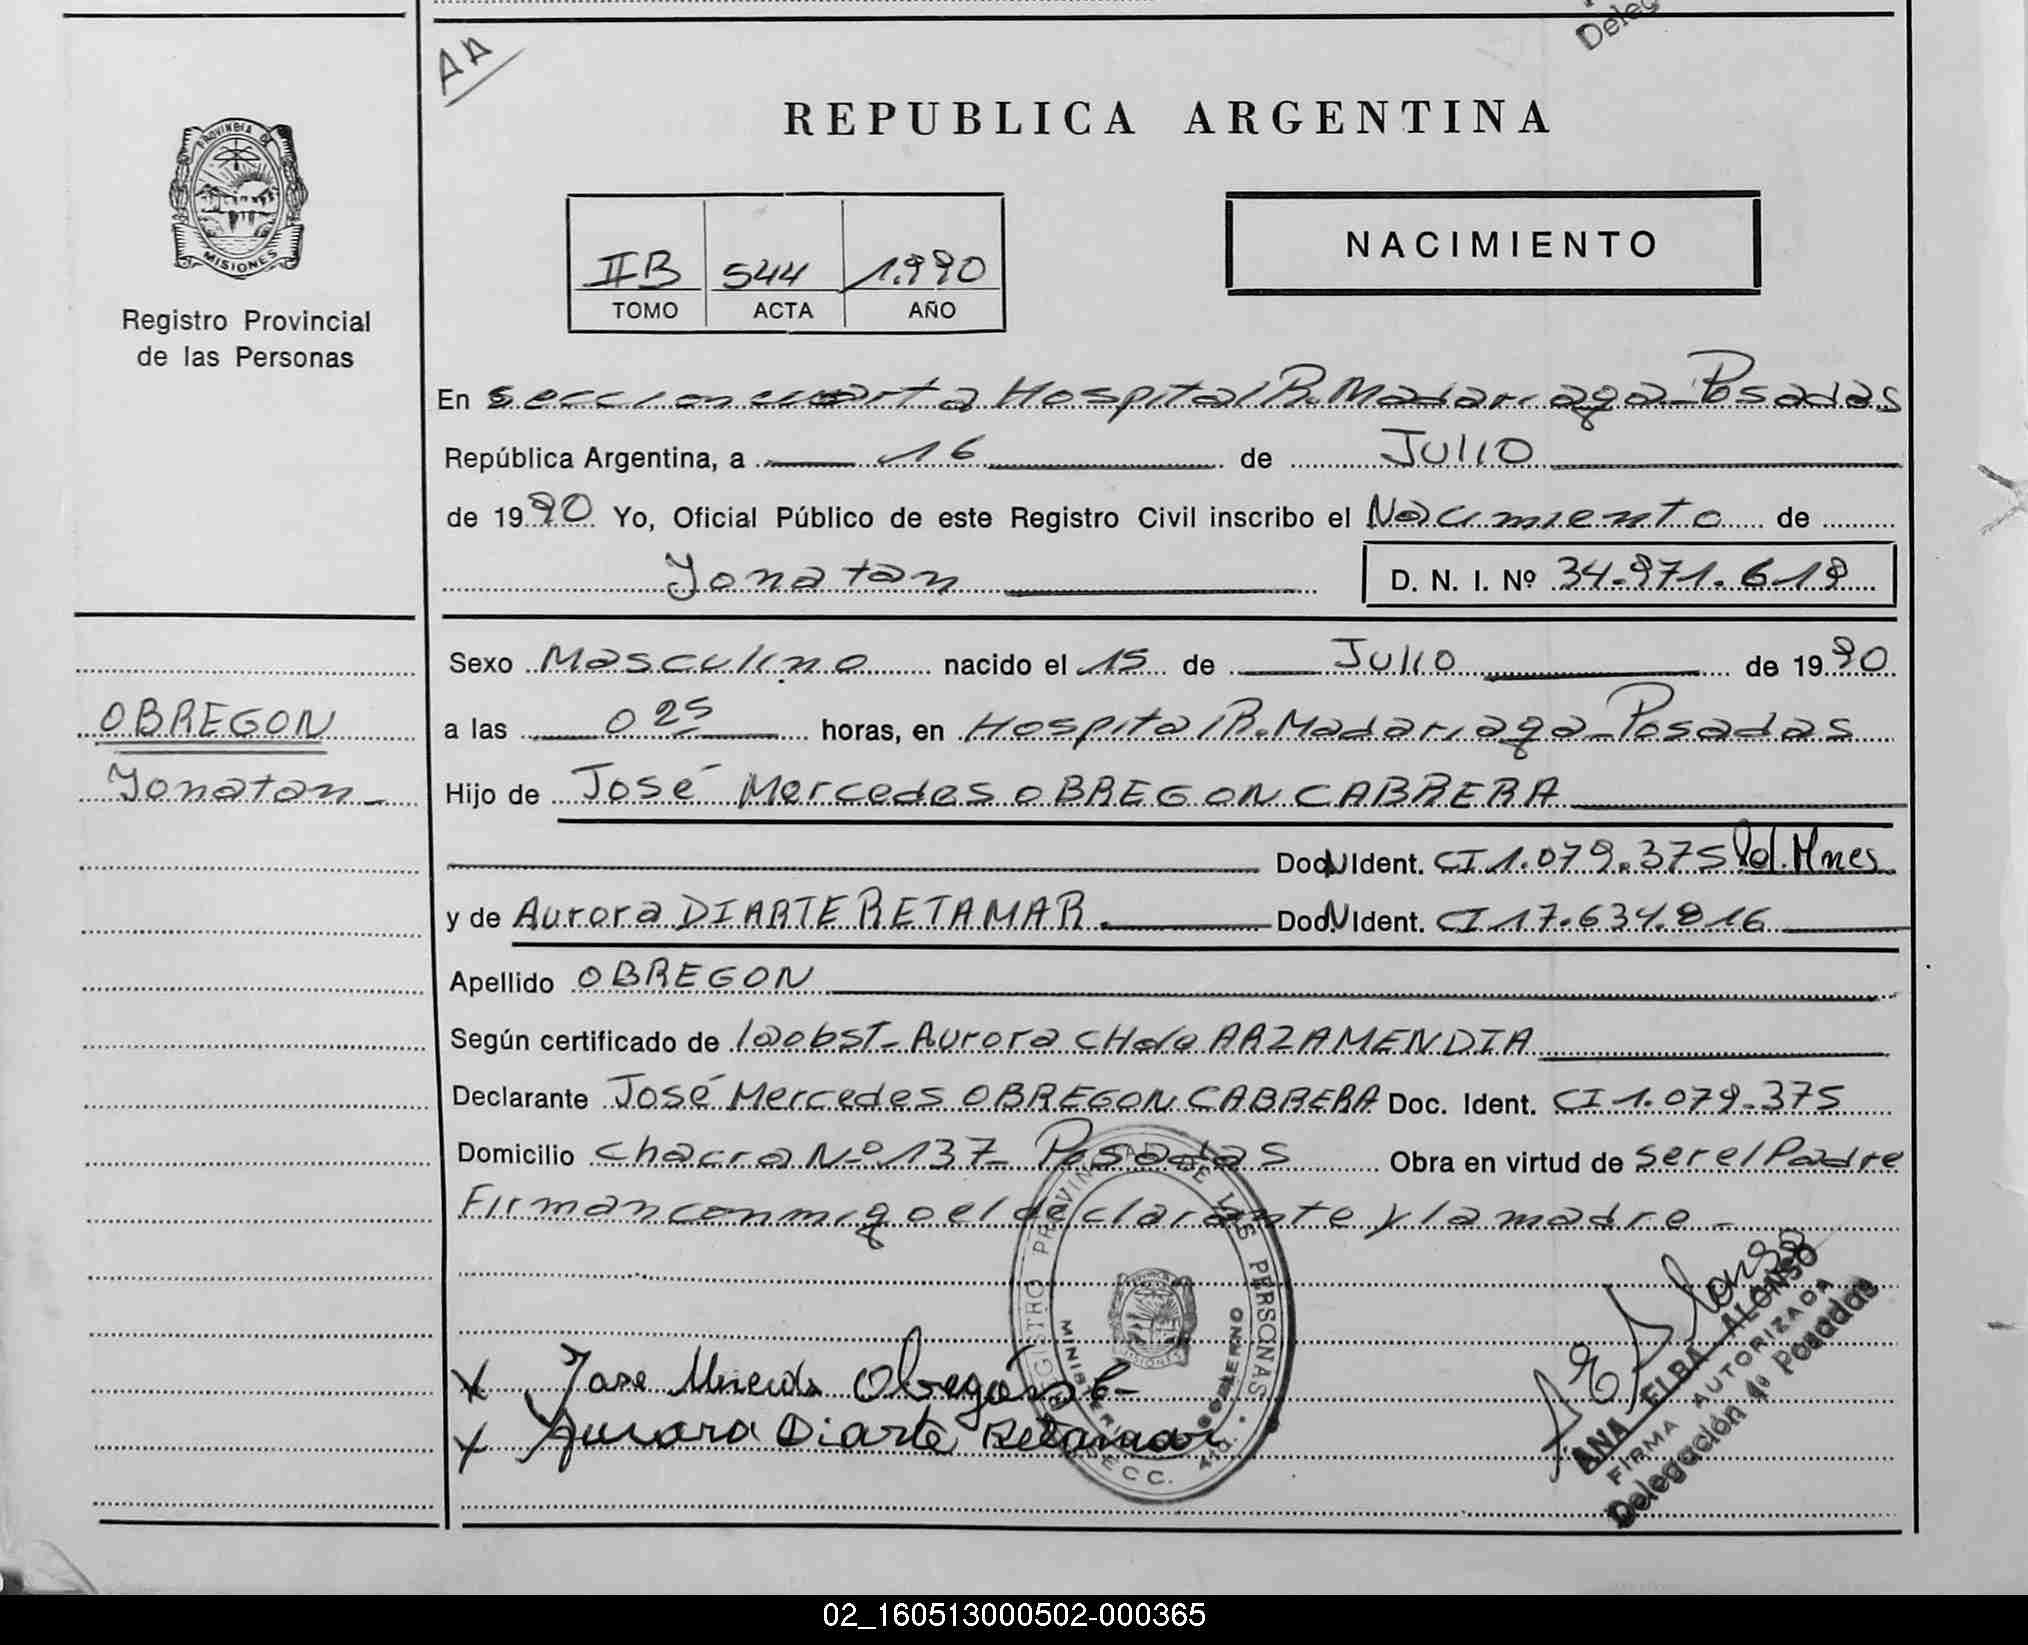 Deleg
AA
REPUBLICA ARGENTINA
PROVINCIA DE
MISIONES
Registro Provincial
de las Personas
IIB 544 1.990
TOMO ACTA AÑO
NACIMIENTO
En seccion cuarta Hospital R. Madariaga_Posadas
República Argentina, a 16 de Julio
de 1990 Yo, Oficial Público de este Registro Civil inscribo el Nacimiento de
Yonatan D. N. I. Nº 34.971.619
Sexo Masculino nacido el 15 de Julio de 1990
OBREGON
Yonatan_
a las 0 25 horas, en Hospital R. Madariaga_Posadas
Hijo de José Mercedes OBREGON CABRERA
Doc. N Ident. CI 1.079.375 Pol. Mnes
y de Aurora DIARTE RETAMAR. Doc. N Ident. CI 17.634.916
Apellido OBREGON
Según certificado de la obst_ Aurora CH de ARZAMENDIA
Declarante José Mercedes OBREGON CABRERA Doc. Ident. CI 1.079.375
Domicilio chacra Nº 137_ Posadas Obra en virtud de ser el Padre
Firman conmigo el declarante y la madre_
REGISTRO PROVINCIAL DE LAS PERSONAS
MINISTERIO DE GOBIERNO
MISIONES
SECC. 4ta.
X Jose Mercedes Obregón C-
X Aurora Diarte Retamar
A E Alonso
ANA ELBA ALONSO
FIRMA AUTORIZADA
Delegación 4ª Posadas
02_160513000502-000365